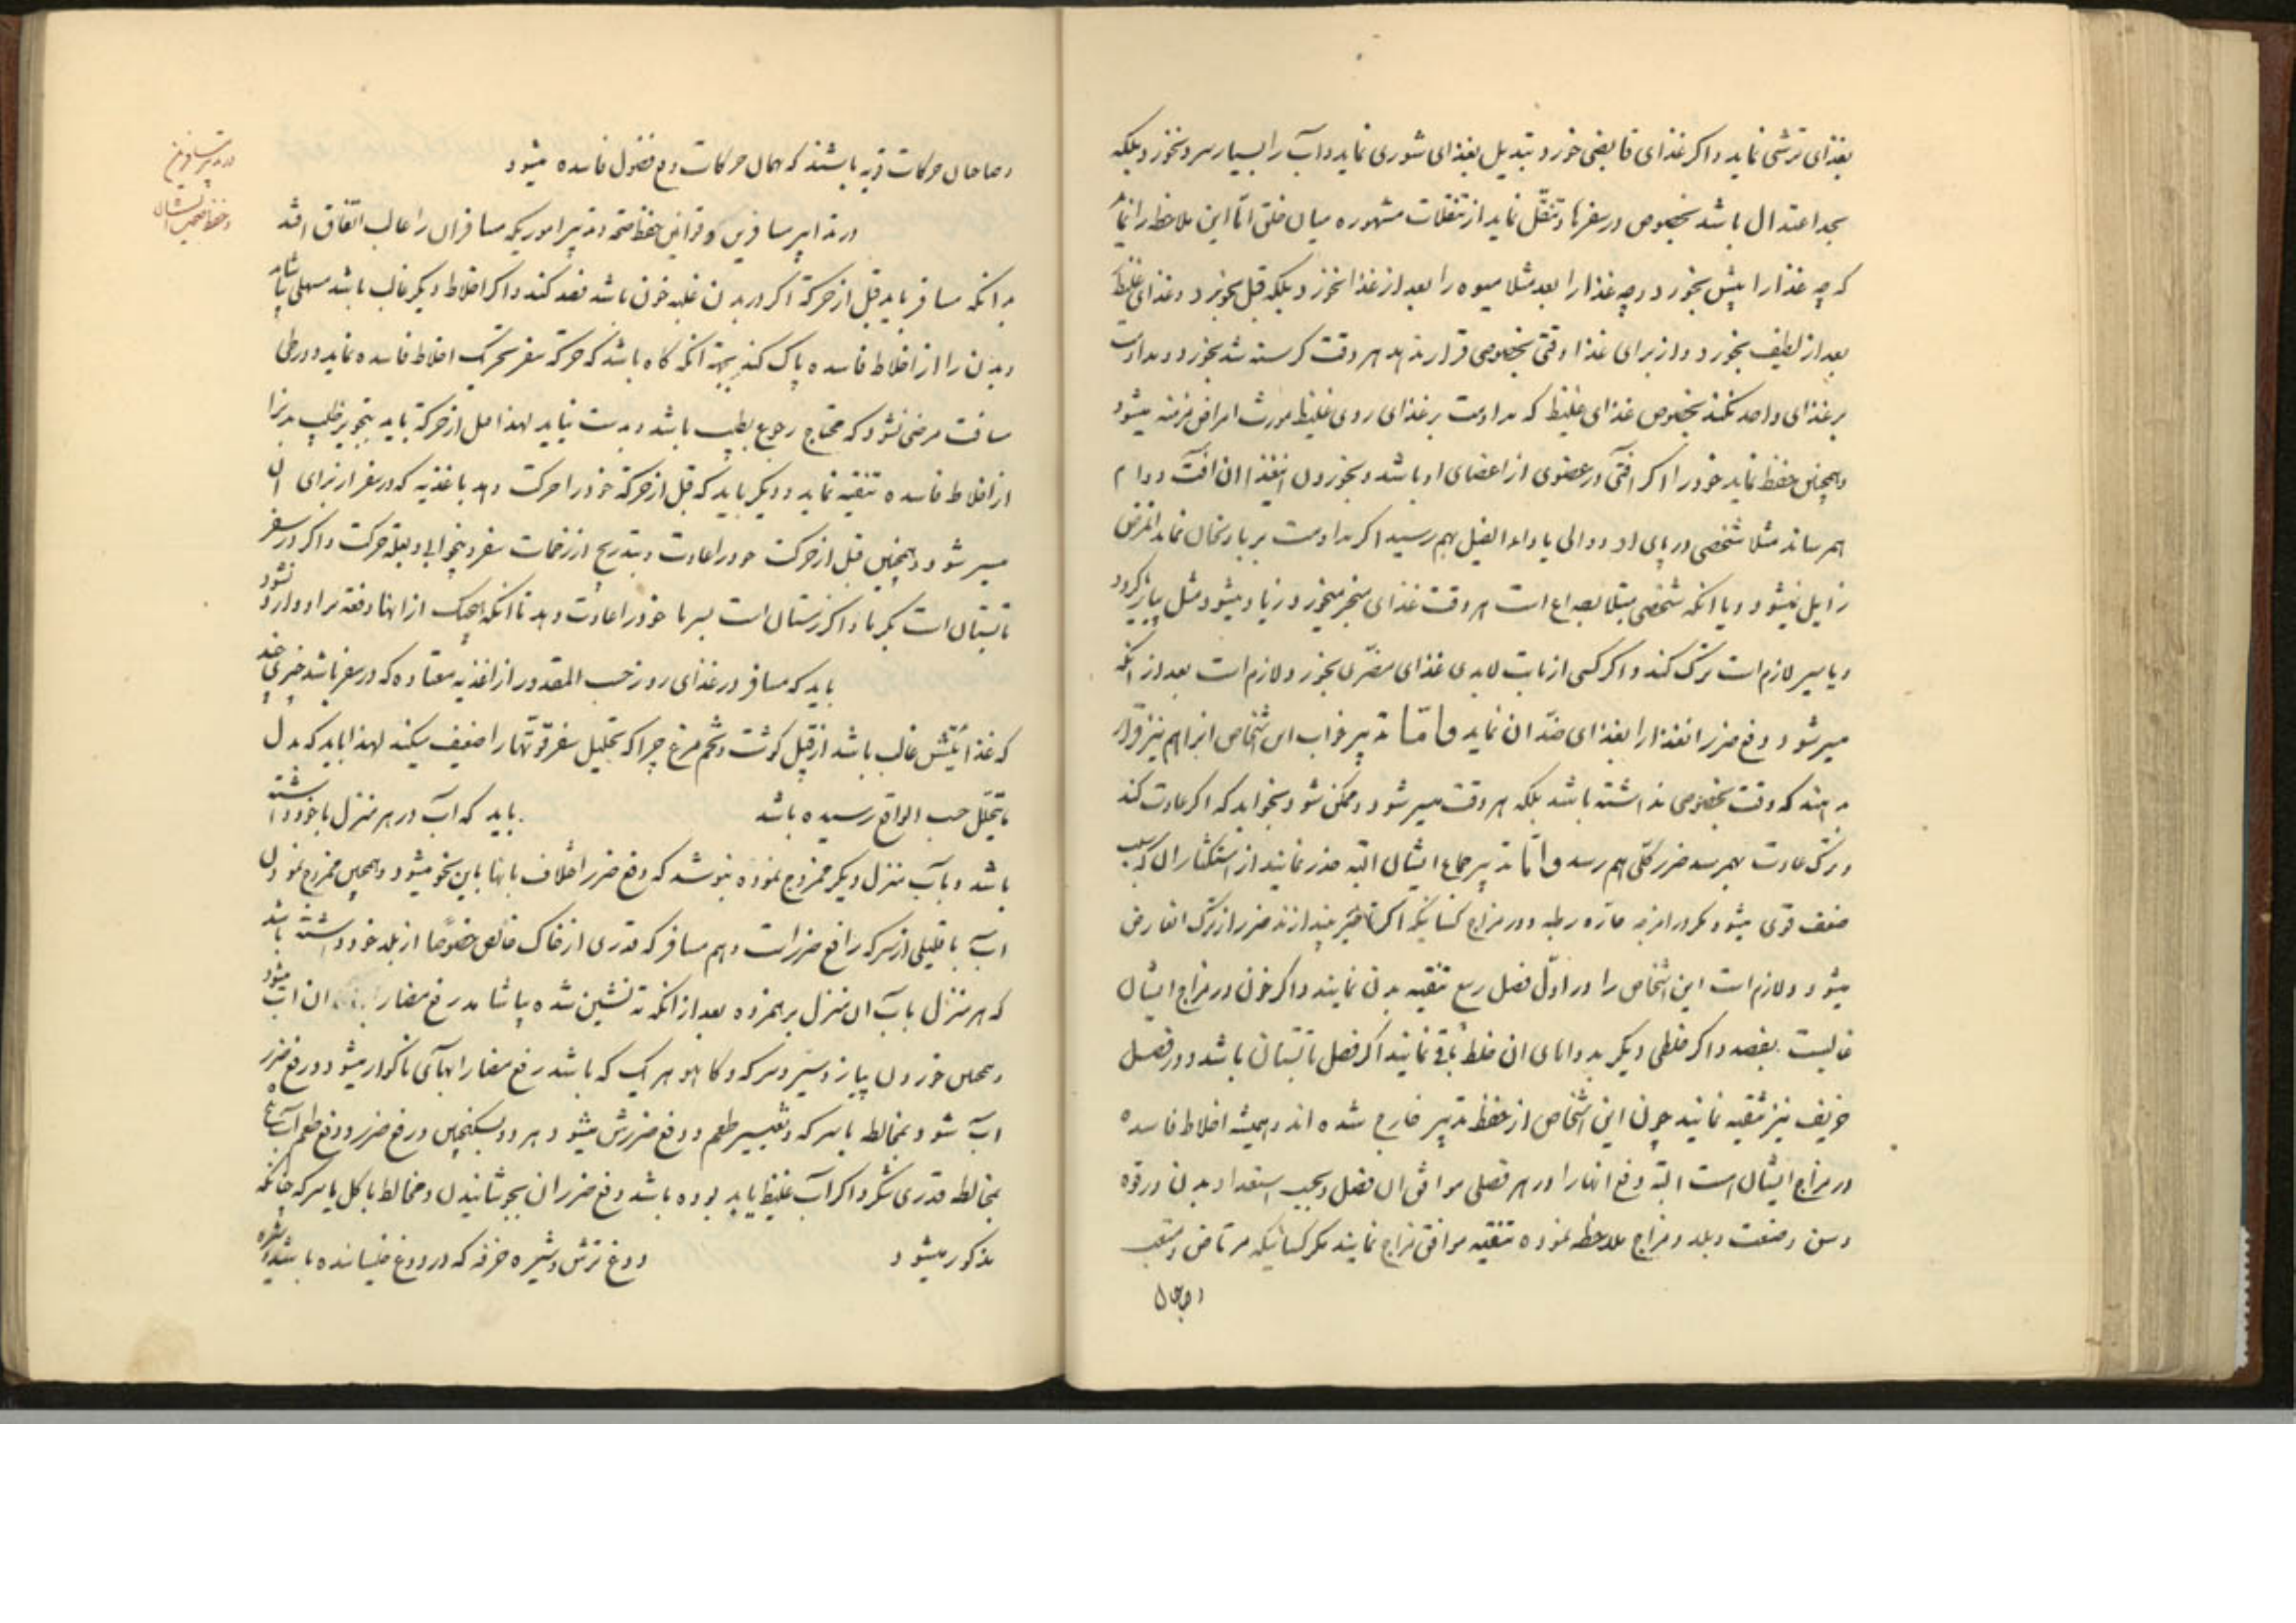 بغذای ترشی نماید و اکر غذای قابضی خورد تبدیل بغذای شوری نماید و آب را بسیار سرد نخورد بلکه
بحد اعتدال باشد بخصوص در سفرها و تنقّل نماید از تنقلات مشهوره میان خلق امّا این ملاحظه را نماید
که چه غذا را پیش بخورد و چه غذا را بعد مثلا میوه را بعد از غذا نخورد بلکه قبل بخورد و غذای غلیظ
بعد از لطیف بخورد و از برای غذا وقتی بخصوصی قرار ندهد هر وقت کرسنه شد بخورد و مداومت
بر غذای واحد نکند بخصوص غذای غلیظ که مداومت بر غذای ردی غلیظ مورث امراض مزمنه میشود
و همچنین حفظ نماید خود را اکر افتی در عضوی از اعضای او باشد و بخوردن انغذا ان افت دوام
بهم رساند مثلا شخصی در پای او دوالی یا داء الفیل بهم رسید اکر مداومت بر بادنجان نماید المرض
زایل نمیشود و یا انکه شخصی مبتلا بصداع است هر وقت غذای مبخر میخورد زیاد میشود مثل پیاز
و یا سیر لازم است ترک کند و اکر کسی از بابت لابدی غذای مضری بخورد لازم است بعد از انکه
میسر شود دفع ضرر انغذا را بغذای ضدّ ان نماید و امّا تدبیر خواب این اشخاص انرا هم نیز قرار
ندهند که وقت بخصوصی نداشته باشد بلکه هر وقت میسر شود و ممکن شود بخوابد که اکر عادت کند
و ترک عادت بهم رسد ضرر کلّی بهم رسد و امّا تدبیر جماع ایشان البته حذر نمایند از استکثار ان که سبب
ضعف قوی میشود مکر در امزجه حارّه رطبه و در مزاج کسانیکه اکر تاخیر بیندازند ضرر از ترک انعارض
میشود و لازم است این اشخاص را در اوّل فصل ربیع تنقیه بدن نمایند و اکر خون در مزاج ایشان
غالبست بفصد و اکر خلطی دیکر بدوای ان خلط نمایند اکر فصل تابستان باشد و در فصل
خریف نیز تنقیه نمایند چون این اشخاص از حفظ تدبیر خارج شده اند و همیشه اخلاط فاسده
در مزاج ایشان است البته دفع انها را در هر فصلی موافق ان فصل و بحسب استعداد بدن و قوّه
و سن و صنعت و بلد و مزاج ملاحظه نموده تنقیه موافق مزاج نمایند مکر کسانیکه مرتاض و متعب
در تدبیر مسافرین
و حفظ صحت ایشان
و صاحبان حرکات قویه باشند که همان حرکات دفع فضول فاسده میشود
در تدابیر مسافرین و قوانین حفظ صحّه و تدبیر اموریکه مسافران را غالب اتّفاق افتد
بدانکه مسافر باید قبل از حرکة اکر در بدن غلبه خون باشد فصد کند و اکر اخلاط دیکر غالب باشد مسهلی بیاشامد
و بدن را از اخلاط فاسده پاک کند بجهة انکه کاه باشد که حرکة سفر تحریک اخلاط فاسده نماید و در طی
مسافت مرضی شود که محتاج رجوع بطبیب باشد و بدست نیاید لهذا قبل از حرکة باید بتجویز طبیب بدنرا
از اخلاط فاسده تنقیه نماید و دیکر باید که قبل از حرکة خود را حرکت دهد باغذیه که در سفر از برای ان
میسر شود و همچنین قبل از حرکت خود را عادت و بتدریج از زحمات سفر و بیخوابی و بقلة حرکت و اکر در سفر
تابستان است بکرما و اکر زمستان است بسرما خود را عادت دهد تا انکه هیچیک از انها دفعه بر او وارد نشود
باید که مسافر در غذای روز حسب المقدور از اغذیه معتاده که در سفر باشد چیزی
که غذائیتش غالب باشد از قبیل کوشت و تخم مرغ چرا که تحلیل سفر قوّتها را ضعیف میکند لهذا باید که بدل
ما یتحلّل حسب الواقع رسیده باشد
باید که آب در هر منزل با خود داشته
باشد و بآب منزل دیکر ممزوج نموده بنوشد که دفع ضرر اختلاف بابها باین نحو میشود و همچنین ممزوج نمودن
آب با قلیلی از سرکه رافع ضرر است و هم مسافر که قدری از خاک خالص خصوصًا از بلد خود داشته باشد
که هر منزل با آب ان منزل برهمزده بعد از انکه ته نشین شده بیاشامد رفع مضار ان آب میشود
و همچنین خوردن پیاز و سیر و سرکه و کاهو هر یک که باشد رفع مضار ابهای ناکوار میشود و رفع ضرر
آب شور بمخالطه با سرکه و تغییر طعم و دفع ضررش میشود هر دو و بسکنجبین و رفع ضرر و دفع طعم آب
بمخالطه قدری شکر و اکر آب غلیظ باید بوده باشد دفع ضرر ان بجوشانیدن و مخالط با کل یا سرکه چنانکه
مذکور میشود
دوغ ترش و شیره خرفه که در دوغ خیسانده باشند